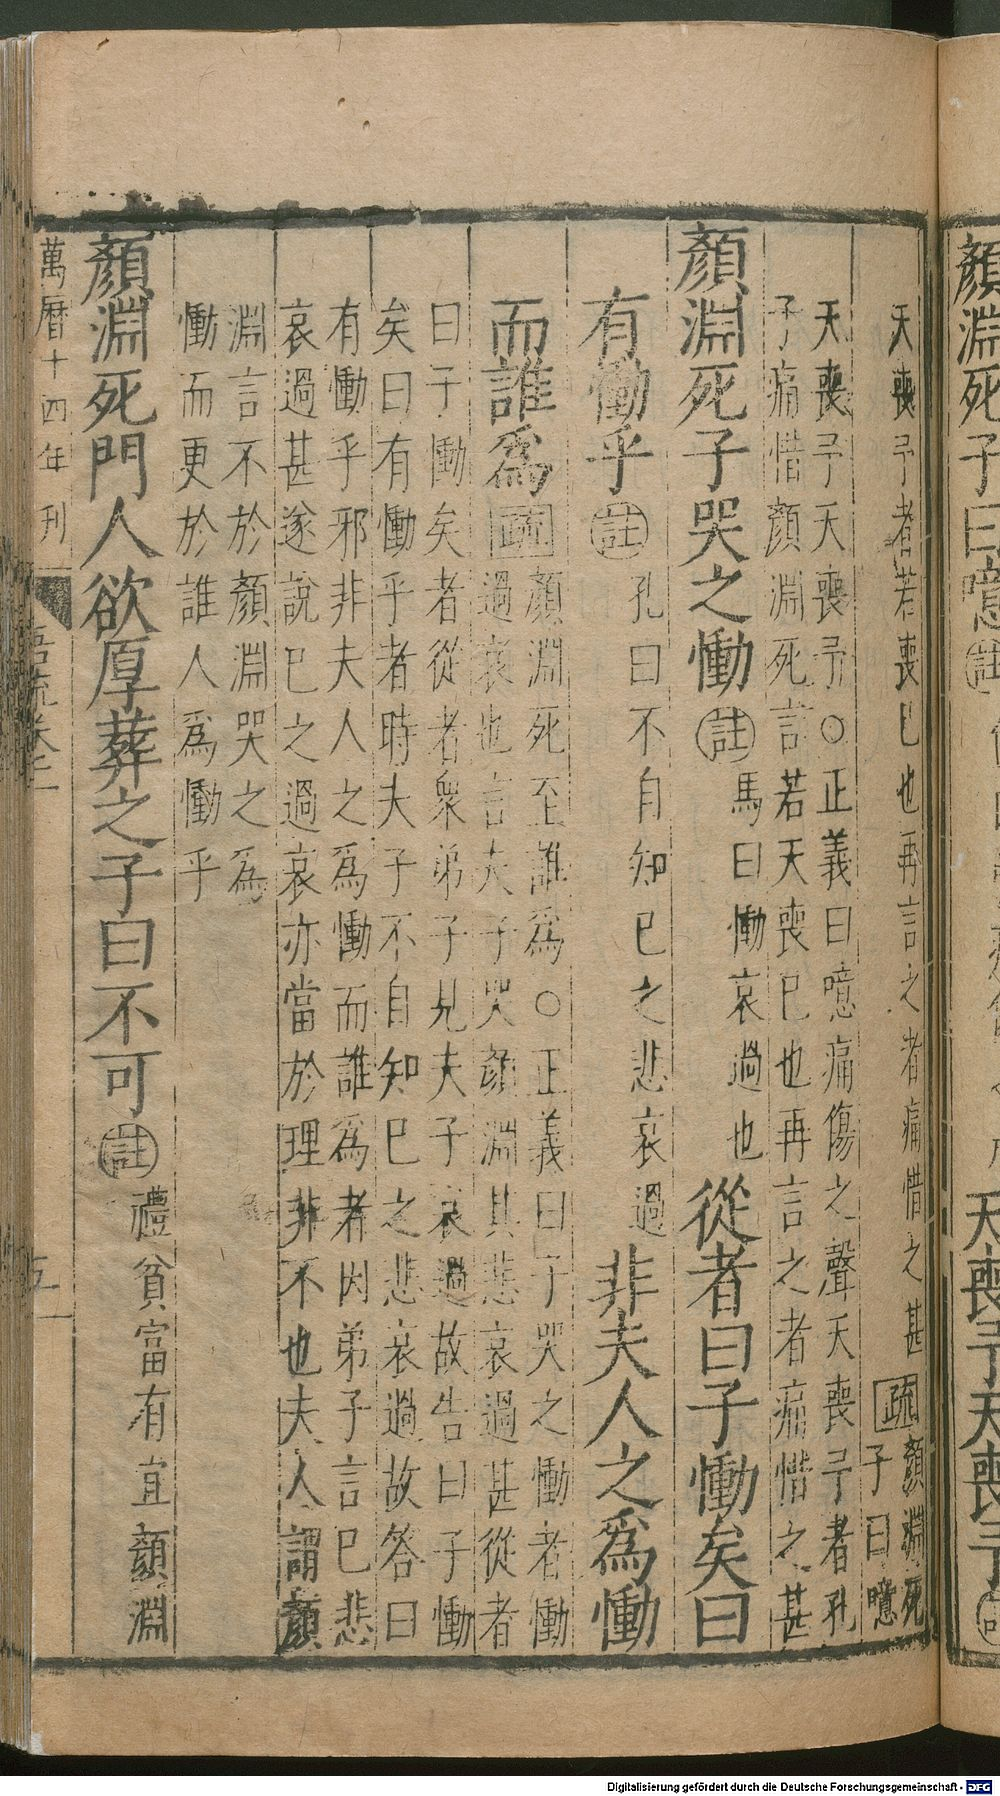 顏淵死子曰噫
天喪予天喪予
天喪予者若喪巳也再言之者痛惜之甚疏顏淵死
子曰噫
天喪予天喪予○正義曰噫痛傷之聲天喪予者孔
子痛惜顏淵死言若天喪巳也再言之者痛惜之甚
顏淵死子哭之慟註馬曰慟哀過也從者曰子慟矣曰
有慟乎註孔曰不自知巳之悲哀過非夫人之為慟
而誰為疏顏淵死至誰為○正義曰子哭之慟者慟
過哀也言夫子哭顏淵其悲哀過甚從者
曰子慟矣者從者衆弟子見夫子哀過故告曰子慟
矣曰有慟乎者時夫子不自知巳之悲哀過故答曰
有慟乎邪非夫人之為慟而誰為者因弟子言巳悲
哀過甚遂說巳之過哀亦當於理非不也夫人謂顏
淵言不於顏淵哭之為
慟而更於誰人為慟乎
顏淵死門人欲厚葬之子曰不可註禮貧富有宜顏淵
萬曆十四年刊
Digitalisierung gefördert durch die Deutsche Forschungsgemeinschaft - DFG